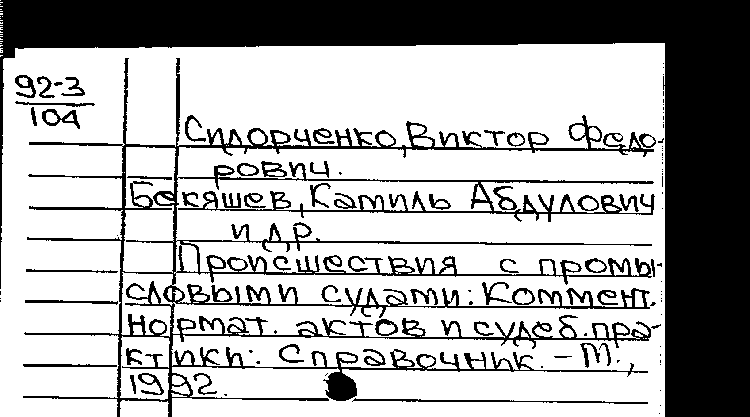 92-3
104
Сидорченко, Виктор Федо-
рович.
Бекяшев, Камиль Абдулович
и др.
Происшествия с промы-
словыми судами: Коммент.
нормат. актов и судеб. пра-
ктики: Справочник. - М.,
1992.